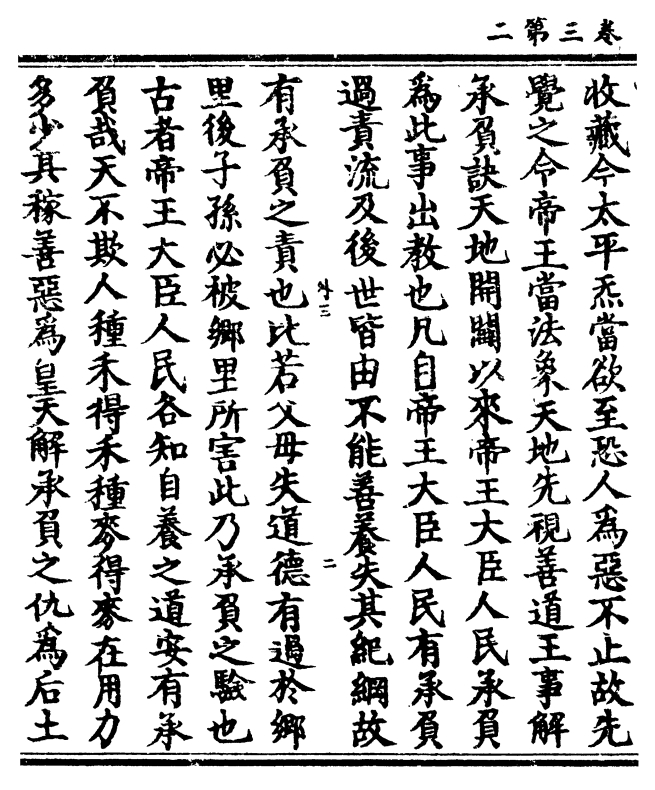 卷三第二
收藏今太平炁當欲至恐人為惡不止故先
覺之令帝王當法象天地先視善道王事解
承負訣天地開闢以來帝王大臣人民承負
為此事出教也凡自帝王大臣人民有承負
過責流及後世皆由不能善養失其紀綱故
外三
二
有承負之責也比若父母失道德有過於鄉
里後子孫必被鄉里所害此乃承負之驗也
古者帝王大臣人民各知自養之道安有承
負哉天不欺人種禾得禾種麥得麥在用力
多少其稼善惡為皇天解承負之仇為后土